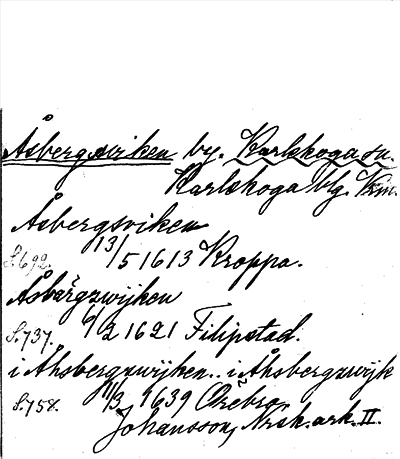 Åsbergsviken by. Karlskoga sn.
Karlskoga blg. Vrm.
Åsbergsviken
S.692. 13/5 1613 Kroppa.
Åsbärgzwijken
S.737. 6/2 1621 Filipstad.
i Åhsbergzwijken.. i Åhsbergzwijk
S.758. 11/3 1639 Örebro.
Johansson, Nrsk. ark. II.